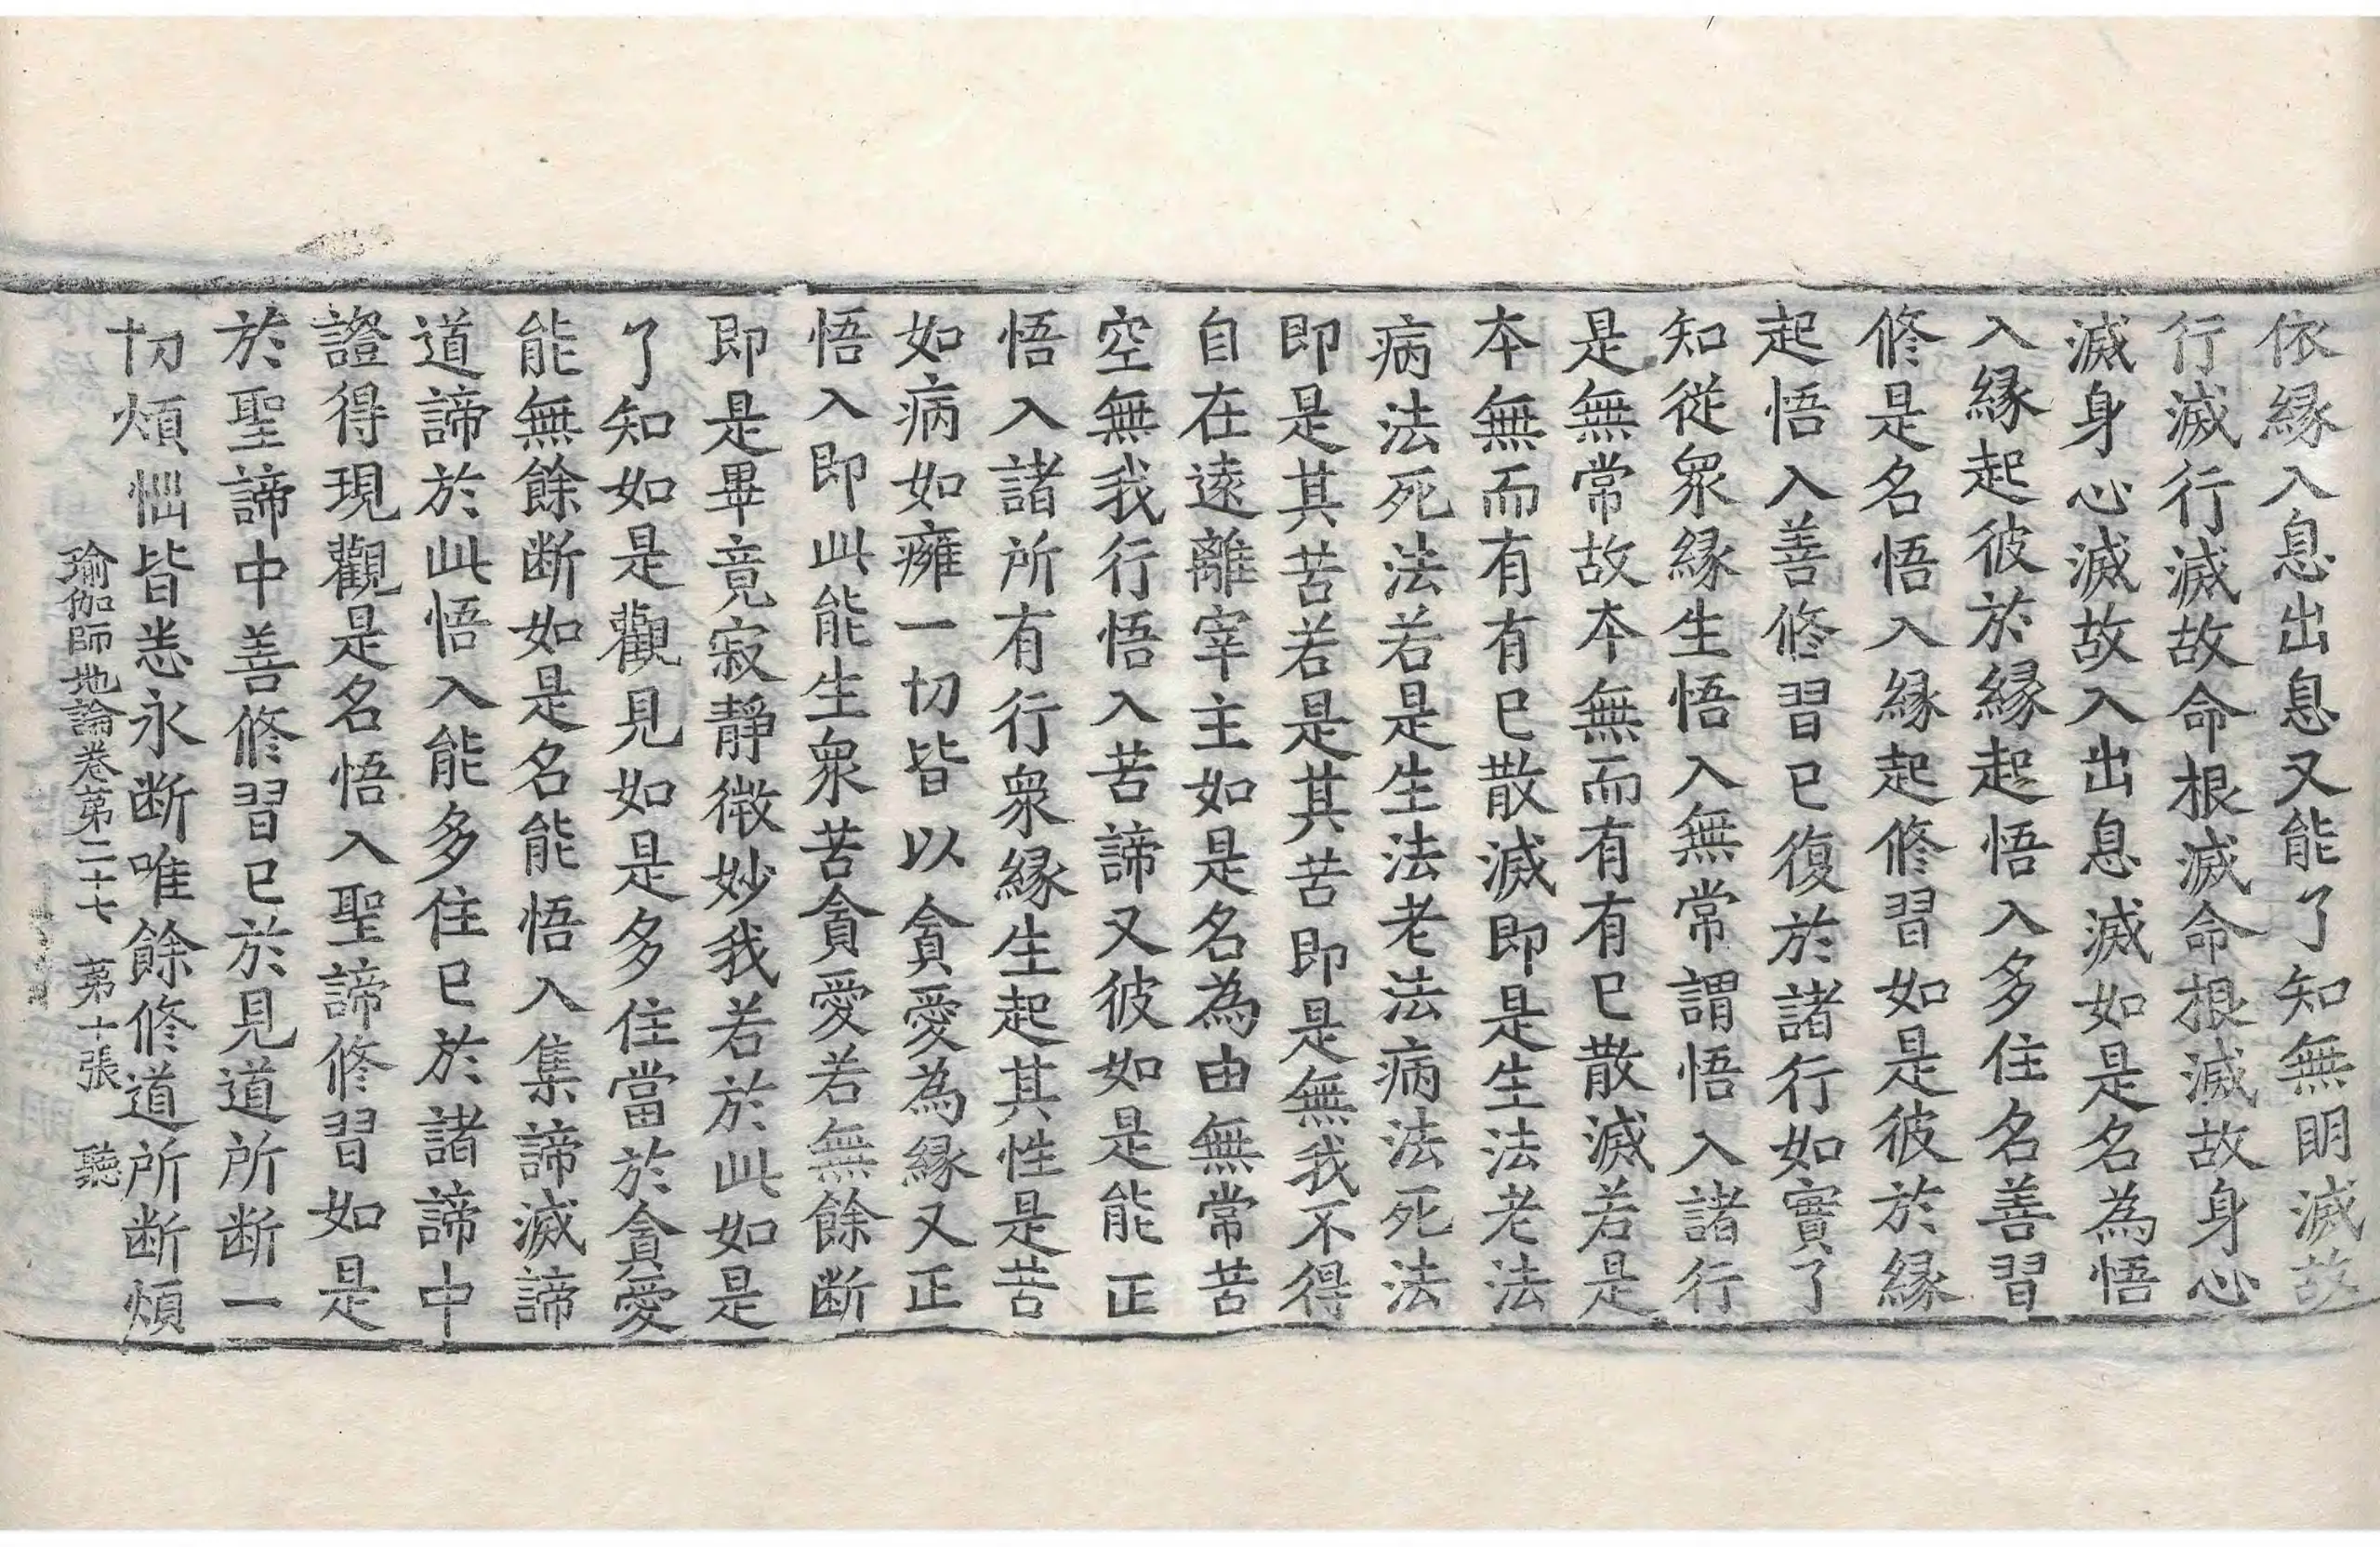 依縁入息出息又能了知無明滅故
行滅行滅故命根滅命根滅故身心
滅身心滅故入出息滅如是名為悟
入縁起彼於縁起悟入多住名善習
修是名悟入縁起修習如是彼於縁
起悟入善修習已復於諸行如實了
知從衆縁生悟入無常謂悟入諸行
是無常故本無而有有已散滅若是
本無而有有已散滅即是生法老法
病法死法若是生法老法病法死法
即是其苦若是其苦即是無我不得
自在遠離宰主如是名為由無常苦
空無我行悟入苦諦又彼如是能正
悟入諸所有行衆縁生起其性是苦
如病如癰一切皆以貪愛為縁又正
悟入即此能生衆苦貪愛若無餘断
即是畢竟寂靜微妙我若於此如是
了知如是觀見如是多住當於貪愛
能無餘断如是名能悟入集諦滅諦
道諦於此悟入能多住已於諸諦中
證得現觀是名悟入聖諦修習如是
於聖諦中善修習已於見道所断一
切煩惱皆悉永断唯餘修道所断煩
瑜伽師地論卷第二十七　第十張　聽